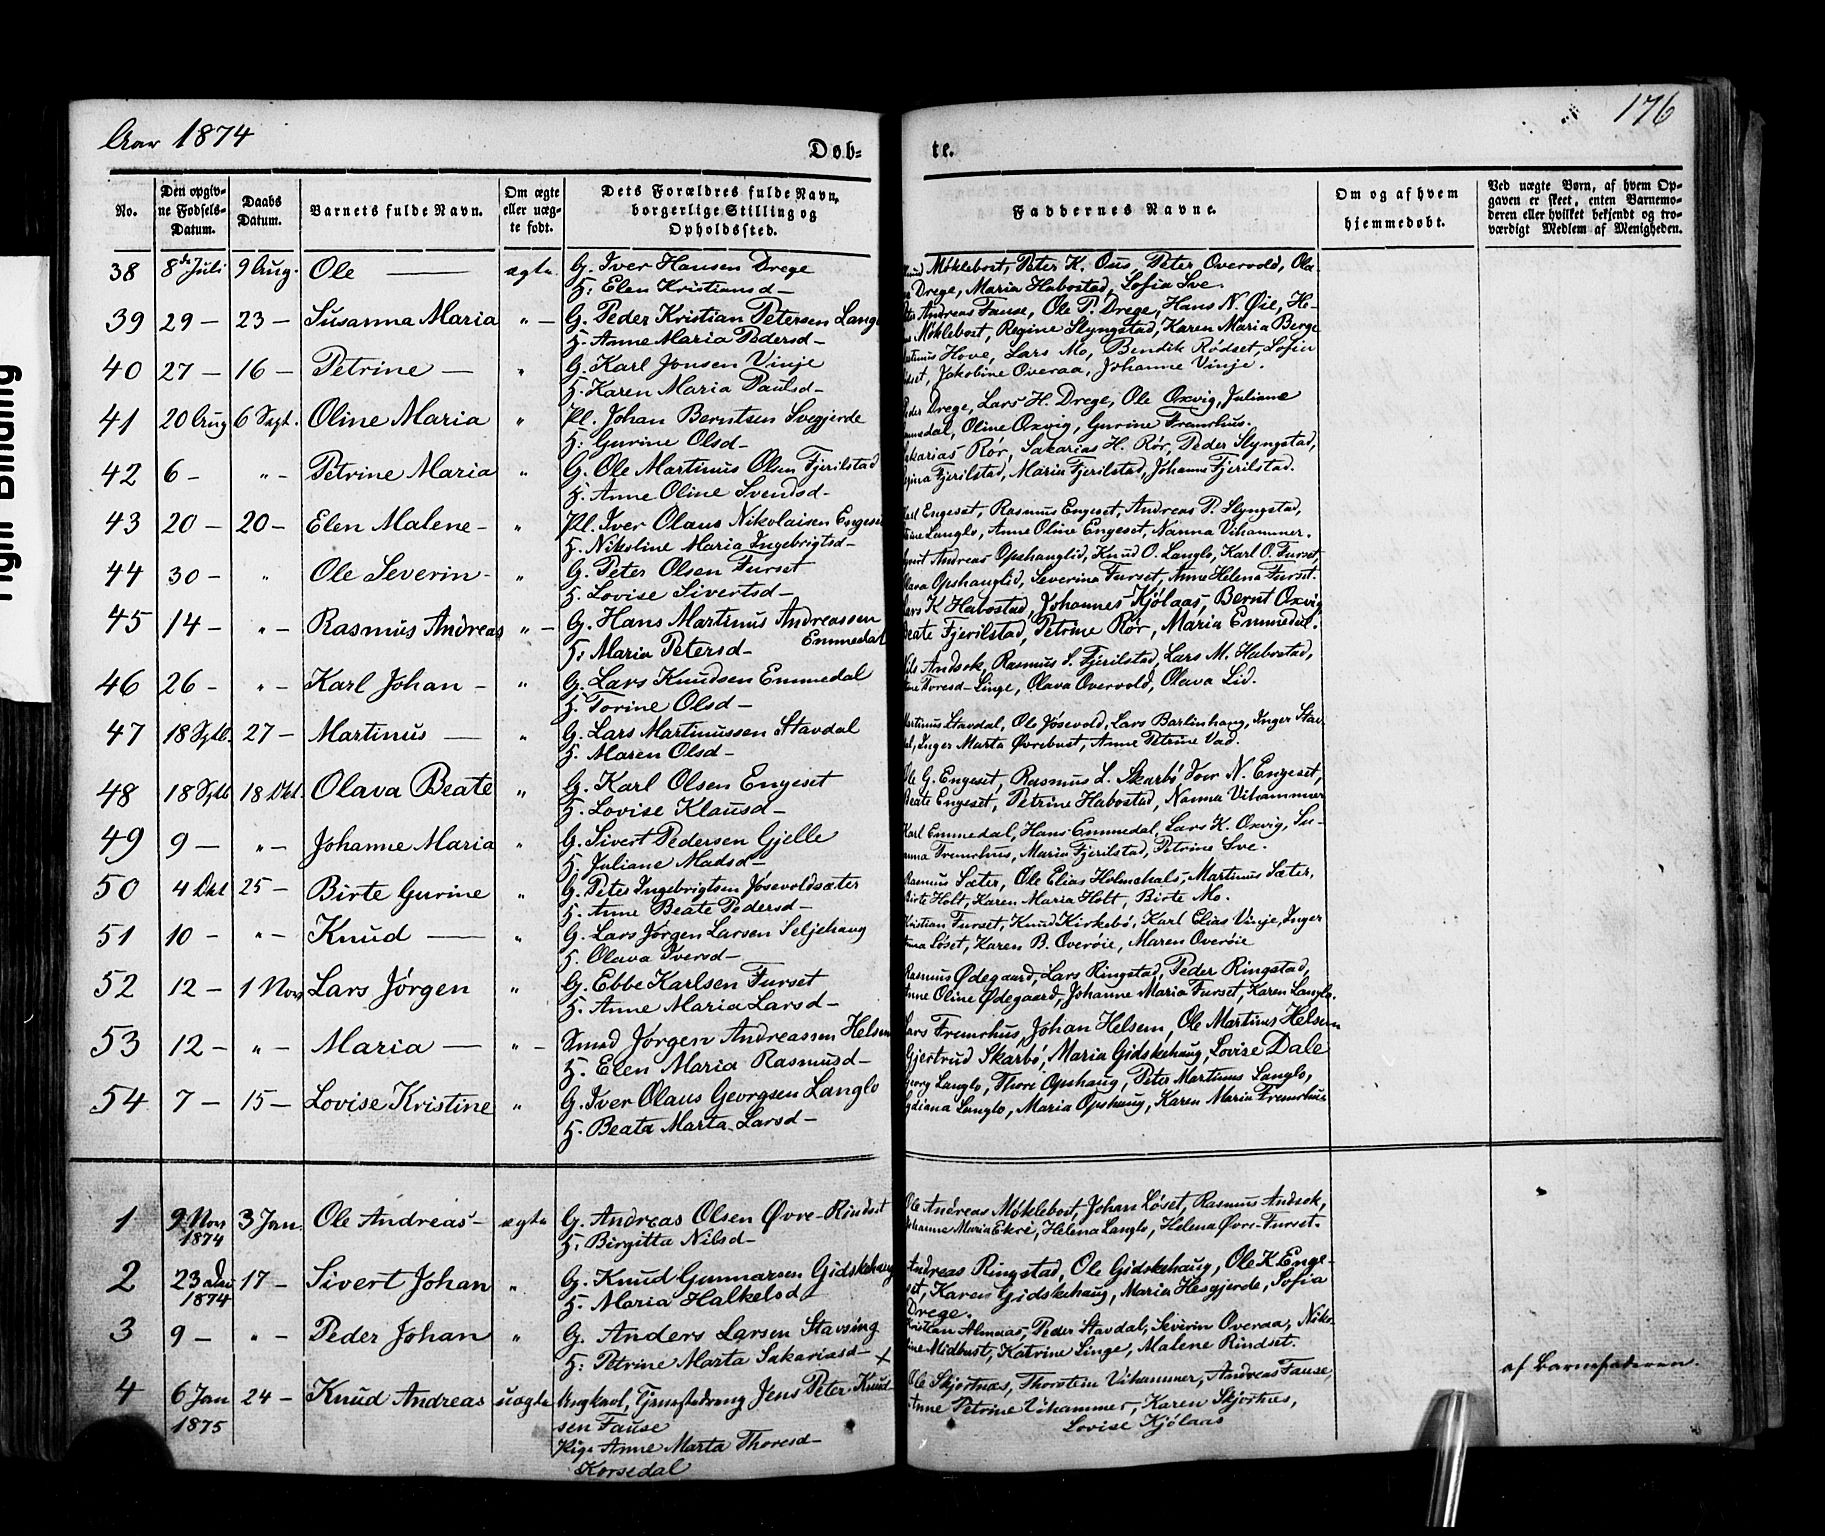 Aar 1874
Døb-
te.
176
No.
Den opgiv-
ne Fødsels-
Datum.
Daabs
Datum.
Barnets fulde Navn.
Om ægte
eller uæg-
te født.
Dets Forældres fulde Navn,
borgerlige Stilling og
Opholdssted.
Faddernes Navne.
Om og af hvem
hjemmedøbt.
Ved uægte Børn, af hvem Op-
gaven er skeet, enten Barnemo-
deren eller hvilket bekjendt og tro-
værdigt Medlem af Menigheden.
38 8de Juli 9 Aug. Ole — ægte G. Iver Hansen Drege
H: Elen Kristiansd—
Møklebost, Peter K. Ous, Peter Overvold, Ola
Drege, Maria Habostad, Sofia Sve.
39 29 — 23 — Susanna Maria " — G. Peder Kristian Petersen Langl
H. Anne Maria Pedersd—
Andreas Fause, Ole P. Drege, Hans N. Øie, He-
Møklebost, Regine Slyngstad, Karen Maria Berge
40 27 — 16 — Petrine — " G. Karl Jonsen Vinje
H. Karen Maria Paulsd—
Hove, Lars Mo, Bendik Rødset, Sofia
Jakobine Overaa, Johanne Vinje.
41 20 Aug 6 Sept. Oline Maria " Pl. Johan Berntsen Svegjerde
H: Gurine Olsd—
Drege, Lars H. Drege, Ole Oxvig, Juliane
Oline Oxvig, Gurine Fremrhus.
42 6 — " — Petrine Maria " G. Ole Martinus Olsen Fjerilstad
H. Anne Oline Svendsd—
Rør, Sakarias H. Rør, Peder Slyngstad,
Fjerilstad, Maria Fjerilstad, Johanne Fjerilstad.
43 20 — 20 — Elen Malene — " Pl. Iver Olaus Nikolaisen Engeset
H. Nikoline Maria Ingebrigtsd—
Engeset, Rasmus Engeset, Andreas P. Slyngstad,
Langlo, Anne Oline Engeset, Nanna Vihammer.
44 30 — " Ole Severin — " G. Peter Olsen Furset
H. Lovise Sivertsd—
Andreas Opshauglid, Knud O. Langlo, Karl O. Furset
Opshauglid, Severina Furset, Anne Helena Furset.
45 14 — " — Rasmus Andreas " — G. Hans Martinus Andreassen
Emmedal
H: Maria Petersd—
Lars K Habostad, Johannes Kjølaas, Bernt Oxvig,
Beate Fjerilstad, Petrine Rør, Maria Emmedal.
46 26 — " — Karl Johan — " G. Lars Knudsen Emmedal
H. Torine Olsd—
Nils Andsok, Rasmus S. Fjerilstad, Lars M. Habostad,
Toresd— Linge, Olava Overvold, Olava Lid.
47 18 Sptb. 27 — Martinus — " G. Lars Martinussen Stavdal
H. Maren Olsd—
Martinus Stavdal, Ole Jøsevold, Lars Barlinhaug, Inger Stav
Inger Marta Øvrebust, Anne Petrine Vad.
48 18 Sptb 18 Okt. Olava Beate " G. Karl Olsen Engeset
H. Lovise Klausd—
Ole G. Engeset, Rasmus L. Skarbø Iver N. Engeset,
Beate Engeset, Petrine Habostad, Nanna Vihammer
49 9 — " — Johanne Maria " G. Sivert Pedersen Gjelle
H. Juliane Madsd—
Karl Emmedal, Hans Emmedal, Lars K. Oxvig, Su-
anna Fremrhus, Maria Fjerilstad, Petrine Sve.
50 4 Okt 25 — Birte Gurine " G. Peter Ingebrigtsen Jøsevoldsæter
H. Anne Beate Pedersd—
Rasmus Sæter, Ole Elias Holmehals, Martinus Sæter,
Birte Holt, Karen Maria Holt, Birte Mo.
51 10 — " — Knud — " G. Lars Jørgen Larsen Seljehaug
H. Olava Iversd—
Kristian Furset, Knud Kirkebø, Karl Elias Vinje, Inger
Løset, Karen B. Overøie, Maren Overøie
52 12 — 1 Nov Lars Jørgen " G. Ebbe Karlsen Furset
H. Anne Maria Larsd—
Rasmus Ødegaard, Lars Ringstad, Peder Ringstad,
Anne Oline Ødegaard, Johanne Maria Furset, Karen Langlo.
53 12 — " — Maria — " — Smed Jørgen Andreassen Helsem
H. Elen Maria Rasmusd—
Lars Fremrhus, Johan Helsem, Ole Martinus Helsem
Gjertrud Skarbø, Maria Gidskehaug, Lovise Dale
54 7 — 15 — Lovise Kristine " G. Iver Olaus Georgsen Langlo
H. Beata Marta Larsd—
Georg Langlo, Thore Opshaug, Peter Martinus Langlo,
Langlo, Maria Opshaug, Karen Maria Fremrhus
1 9 Nov 1874 3 Jan. Ole Andreas — ægte G. Andreas Olsen Øvre-Rindset
H: Birgitta Nilsd—
Ole Andreas Møklebost, Johan Løset, Rasmus Andsok,
Johanne Maria Ekre, Helena Langlo, Helena Øvre-Furset.
2 23 Dec 1874 17 — Sivert Johan " G. Knud Gunnarsen Gidskehaug
H. Maria Halkelsd
Andreas Ringstad, Ole Gidskehaug, Ole K Enge-
set, Karen Gidskehaug, Maria Hesgjerde, Sofia
Drege.
3 9 — " — Peder Johan " G. Anders Larsen Stavsing
H: Petrine Marta Sakariasd— +
Kristian Almaas, Peder Stavdal, Severin Overaa, Niko-
line Midbust, Katrine Linge, Malene Rindset.
4 6 Jan 1875 24 — Knud Andreas uægte Ungkarl, Tjenestedreng Jens Peter Knud-
sen Fause
Pige Anne Marta Thoresd—
Korsedal
Ole Skjortnæs, Thorstein Vihammer, Andreas Fause,
Anne Petrine Vihammer, Karen Skjortnes,
Lovise Kjølaas
af Barnefaderen.
Tight Binding